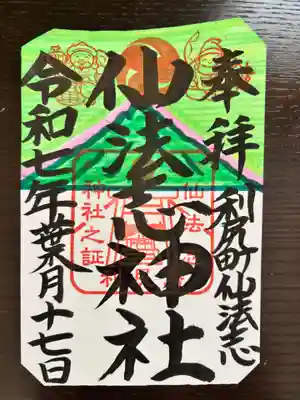 奉拝
利尻町仙法志
仙法志神社
令和七年葉月十七日
神社之証